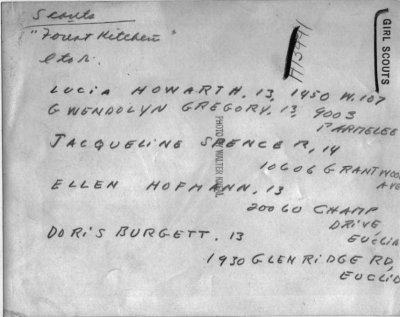 Scouts
"Fount Kitchen"
L to R.
GIRL SCOUTS
LUCIA HOWARTH, 13, 1450 W. 107
GWENDOLYN GREGORY, 13, 9003
PARMELEE
JACQUELINE SPENCER, 14
10606 GRANTWOOD
AVE
ELLEN HOFMANN, 13
20060 CHAMP
DRIVE,
EUCLID
DORIS BURGETT, 13
1930 GLENRIDGE RD,
EUCLID
PHOTO BY WALTER